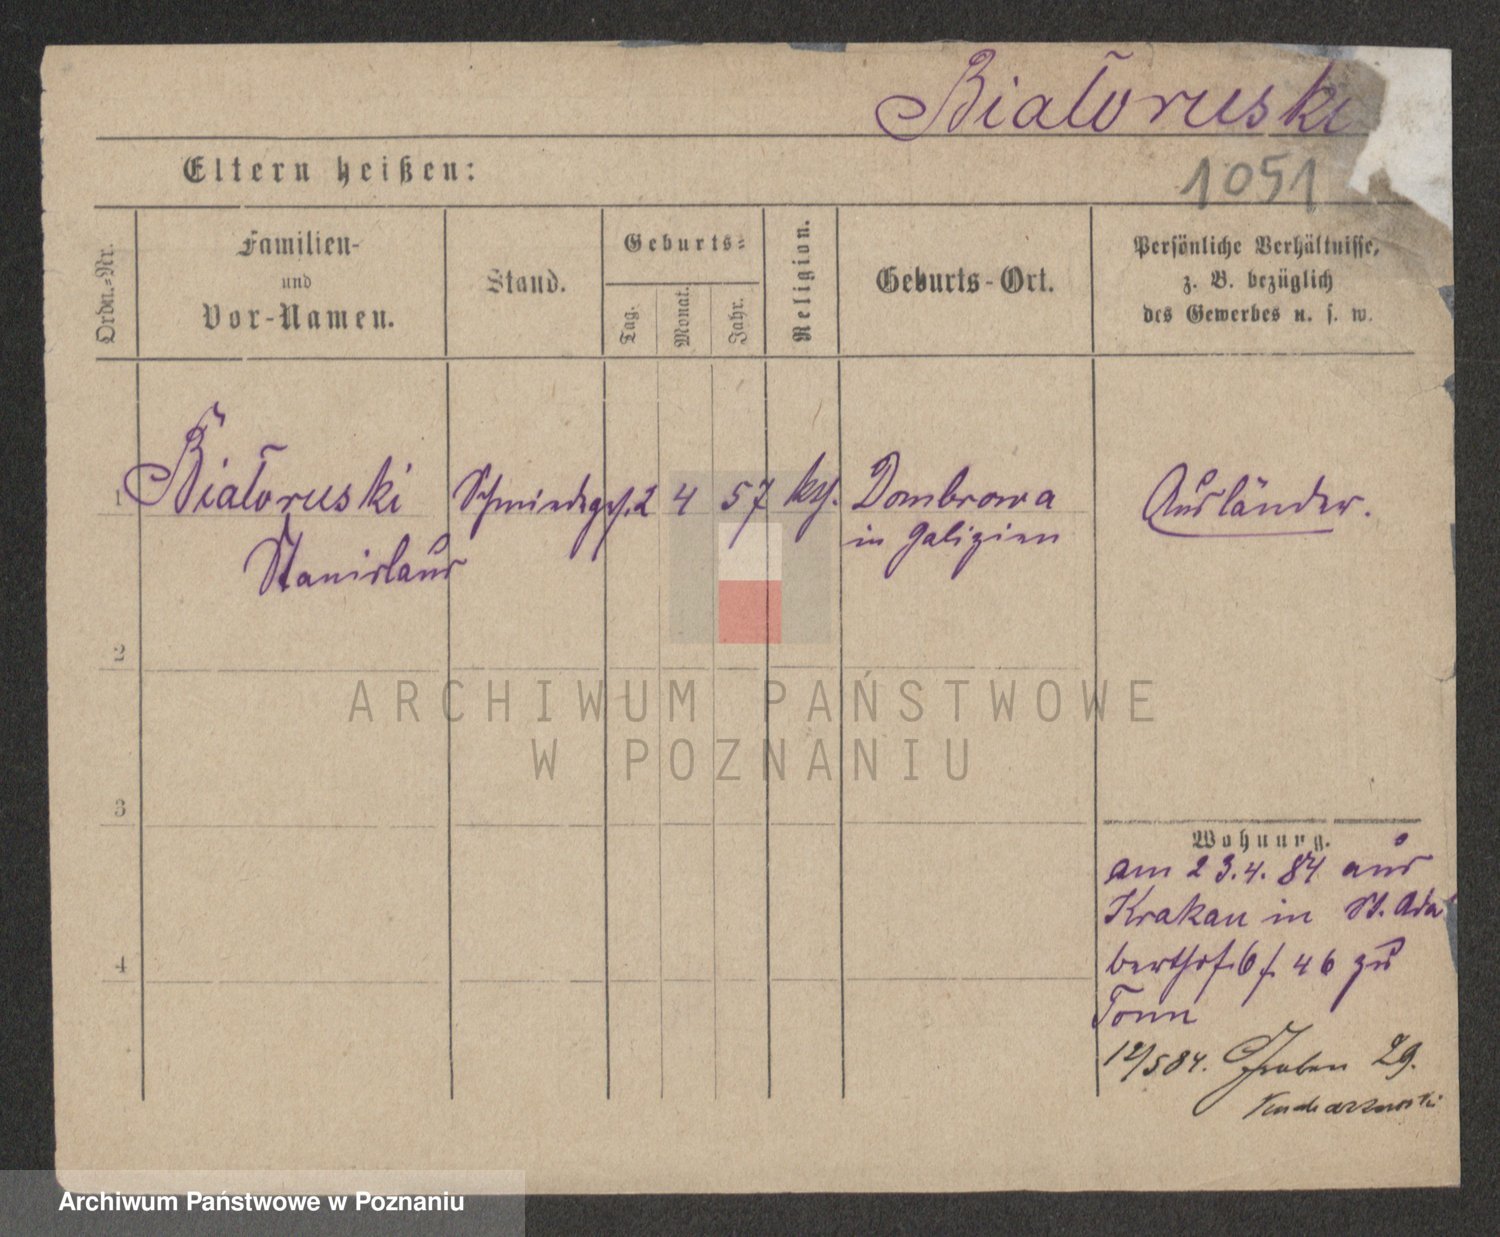 Białoruski
Eltern heißen:
1051
Ordn.-Nr.
Familien-
und
Vor-Namen.
Stand.
Geburts-
Tag.
Monat.
Jahr.
Religion.
Geburts-Ort.
Persönliche Verhältnisse,
z. B. bezüglich
des Gewerbes u. s. w.
1 Białoruski Schmiedeges. 2 4 57 Dombrowa Ausländer.
Stanislaus in Galizien
2
ARCHIWUM PAŃSTWOWE
W POZNANIU
3
Wohnung.
am 23.4.84 aus
Krakau in St. Adal
4
berthof 46 zu
Tonn
12/5 84. Graben 29.
Archiwum Państwowe w Poznaniu